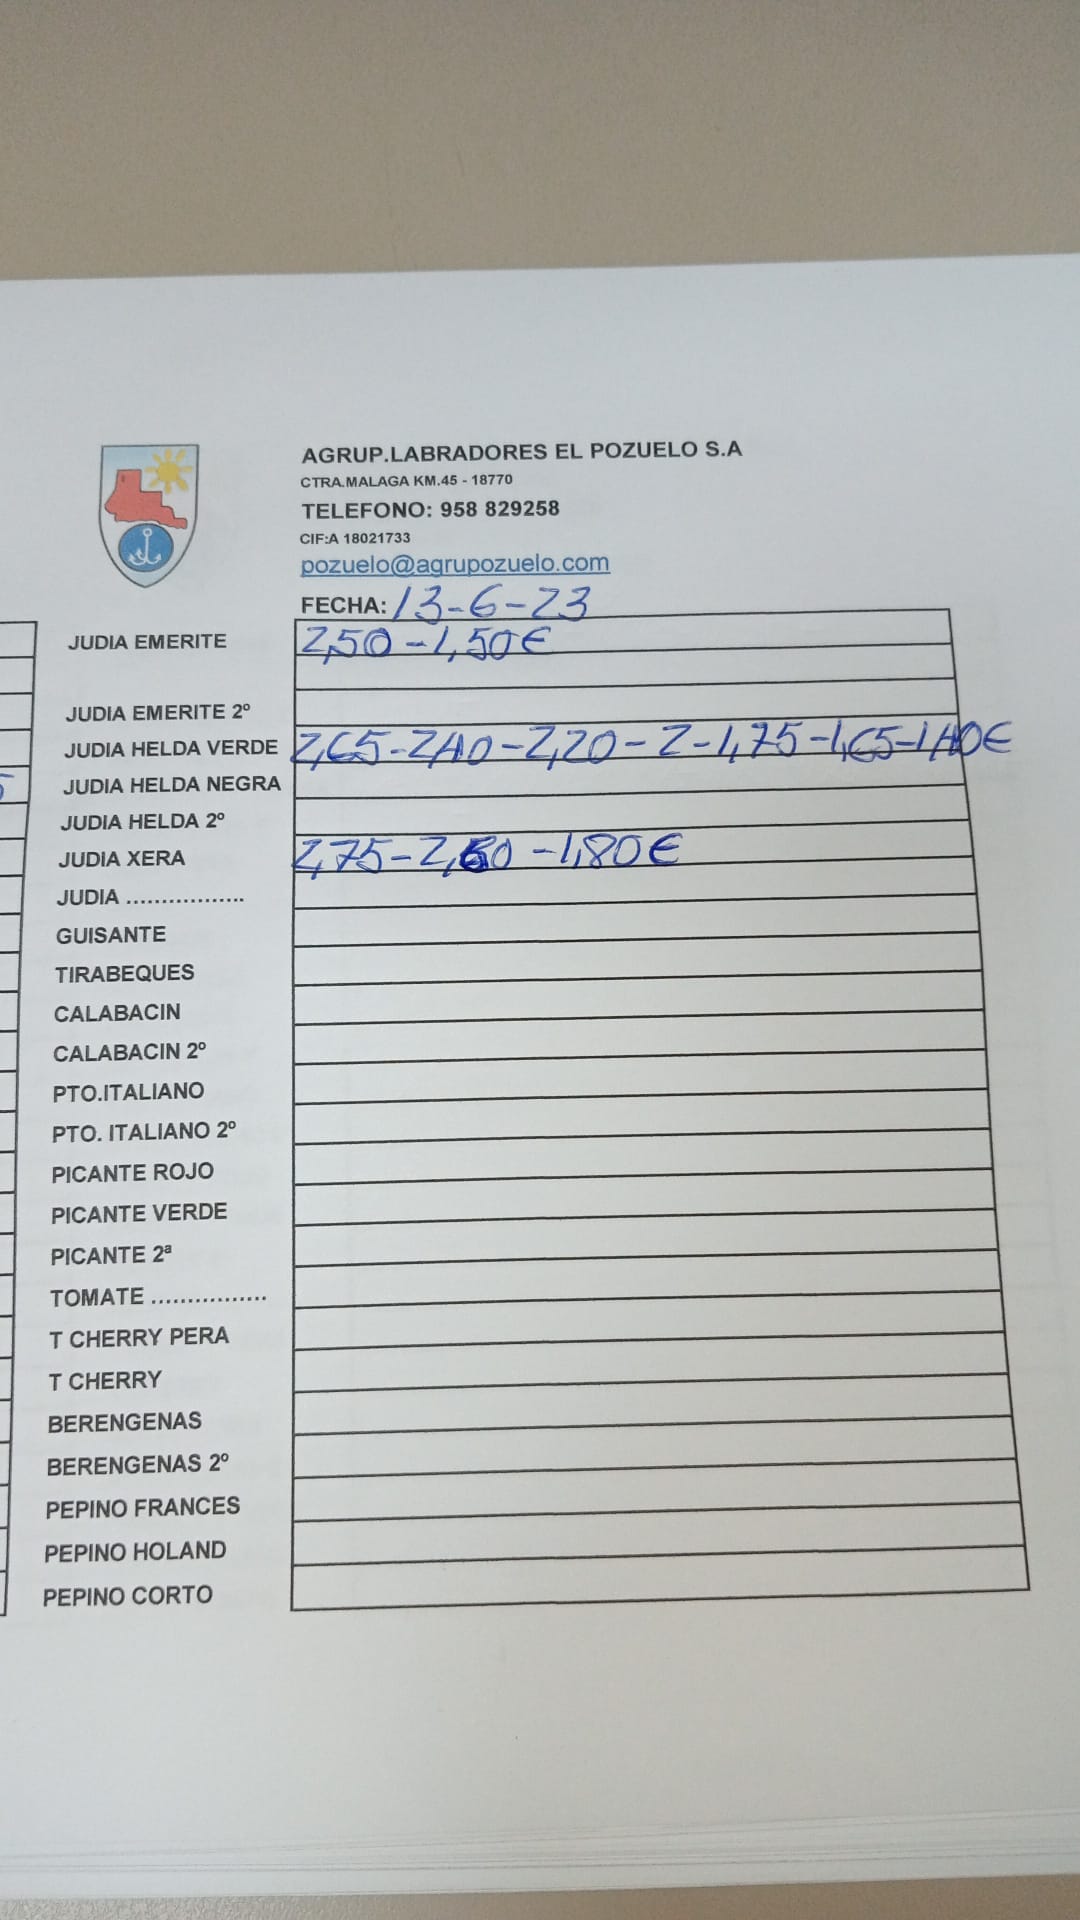 AGRUP.LABRADORES EL POZUELO S.A
CTRA.MALAGA KM.45 - 18770
TELEFONO: 958 829258
CIF:A 18021733
pozuelo@agrupozuelo.com
FECHA: 13-6-23
JUDIA EMERITE 2,50-1,50€
JUDIA EMERITE 2º
JUDIA HELDA VERDE 2,65-2,40-2,20-2-1,75-1,65-1,40€
JUDIA HELDA NEGRA
JUDIA HELDA 2º
JUDIA XERA 2,75-2,60-1,80€
JUDIA .................
GUISANTE
TIRABEQUES
CALABACIN
CALABACIN 2º
PTO.ITALIANO
PTO. ITALIANO 2º
PICANTE ROJO
PICANTE VERDE
PICANTE 2ª
TOMATE ................
T CHERRY PERA
T CHERRY
BERENGENAS
BERENGENAS 2º
PEPINO FRANCES
PEPINO HOLAND
PEPINO CORTO